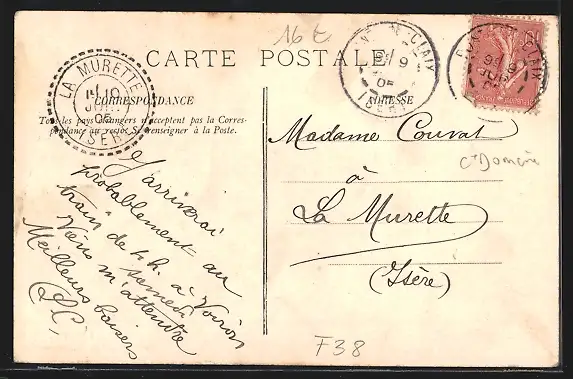 16 €
CARTE POSTALE
LA MURETTE
ISÈRE
CORRESPONDANCE
ADRESSE
Tous les pays étrangers n'acceptent pas la Corres-
pondance au recto. Se renseigner à la Poste.
J'arriverai
probablement au
train de 4 h. à Voiron
samedi
Viens m'attendre
Meilleurs baisers
Madame Couvat
à
La Murette
(Isère)
F38